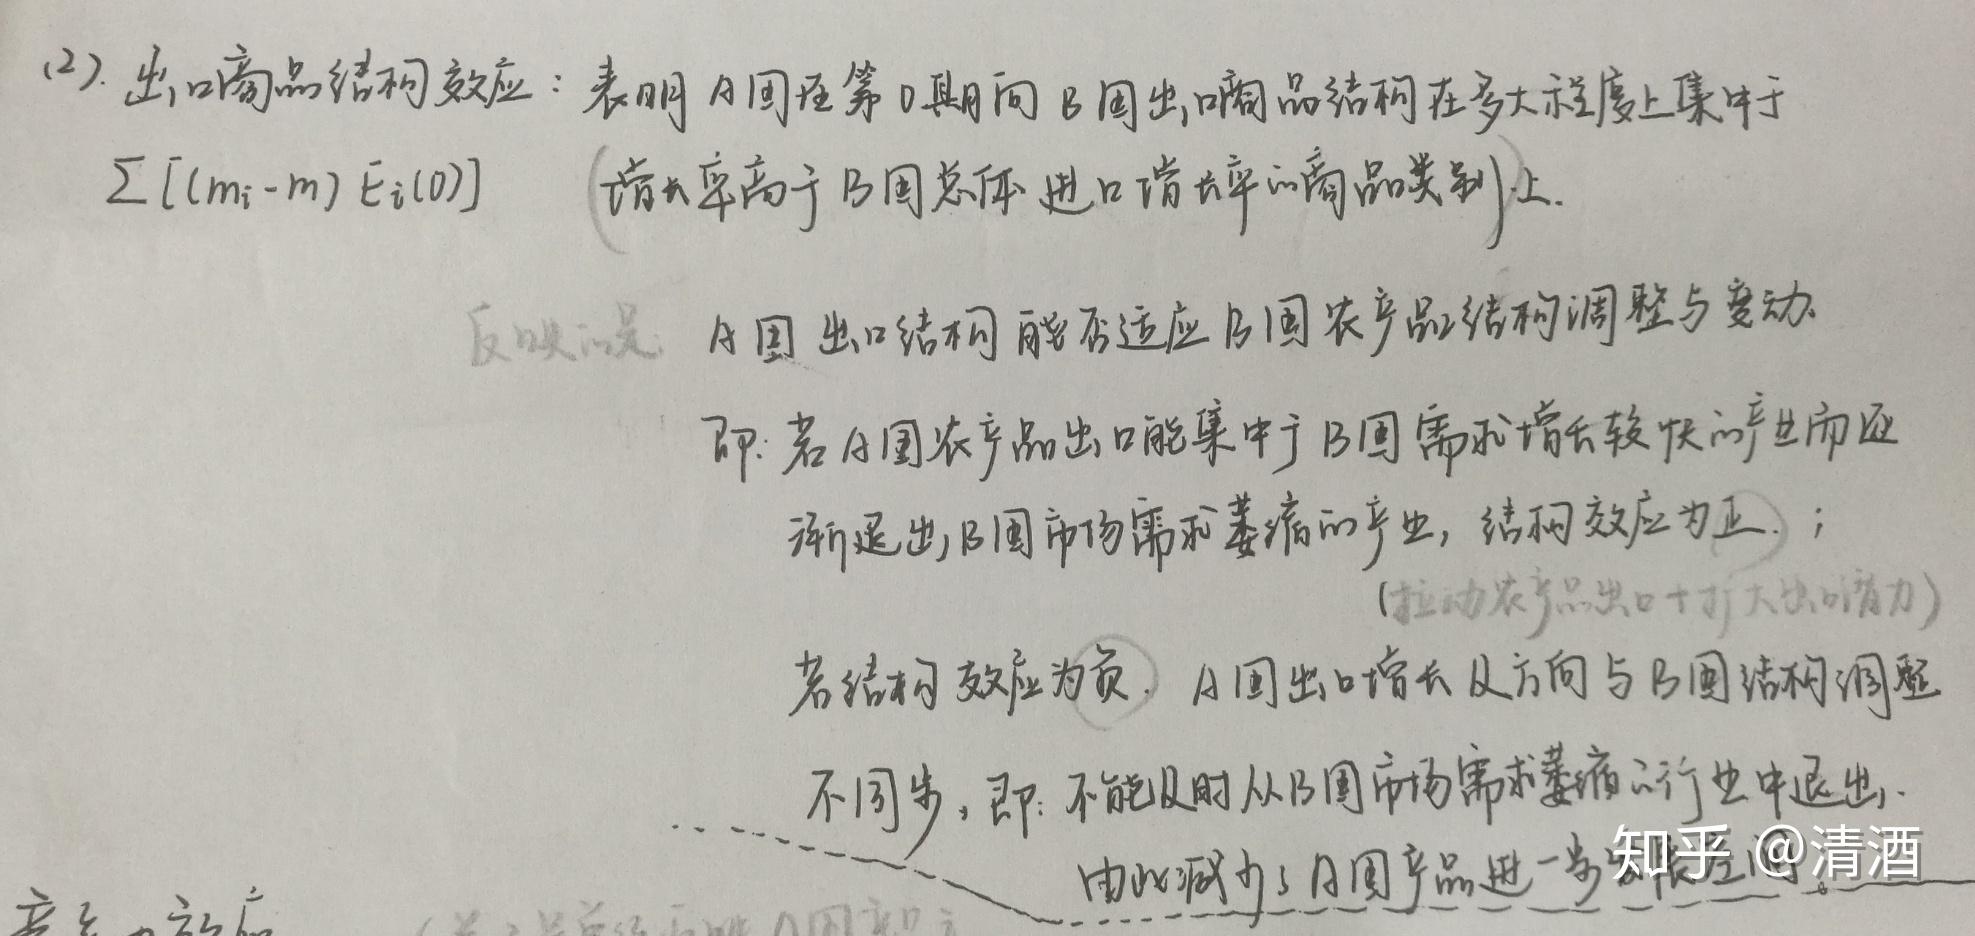 (2). 出口商品结构效应：表明A国在第0期间B国出口商品结构在多大程度上集中于
Σ[(mi-m) Ei(0)] (增长率高于B国总体进口增长率的商品类别)上.
反映的是: A国出口结构能否适应B国农产品结构调整与变动.
即: 若A国农产品出口能集中于B国需求增长较快的产业而逐
渐退出B国市场需求萎缩的产业, 结构效应为正. ;
(拉动农产品出口+扩大出口潜力)
若结构效应为负. A国出口增长及方向与B国结构调整
不同步, 即: 不能及时从B国市场需求萎缩的行业中退出.
由此减少了A国产品进一步发展空间.
知乎 @清酒
竞争力效应